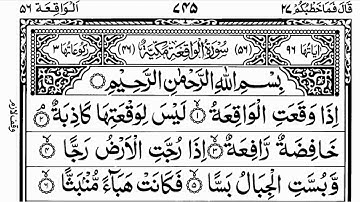 قَالَ فَمَا خَطْبُكُمْ ٢٧ ٧٤٥ اَلْوَاقِعَة ٥٦
اٰيَاتُهَا ٩٦ (٥٦) سُوْرَةُ الْوَاقِعَةِ مَكِّيَّةٌ (٤٦) رُكُوْعَاتُهَا ٣
بِسْمِ اللّٰهِ الرَّحْمٰنِ الرَّحِيْمِ
اِذَا وَقَعَتِ الْوَاقِعَةُ ۙ۝١ لَيْسَ لِوَقْعَتِهَا كَاذِبَةٌ ۘ۝٢
خَافِضَةٌ رَّافِعَةٌ ۙ۝٣ اِذَا رُجَّتِ الْاَرْضُ رَجًّا ۙ۝٤
وَّبُسَّتِ الْجِبَالُ بَسًّا ۙ۝٥ فَكَانَتْ هَبَآءً مُّنْۢبَثًّا ۙ۝٦
وقف لازم